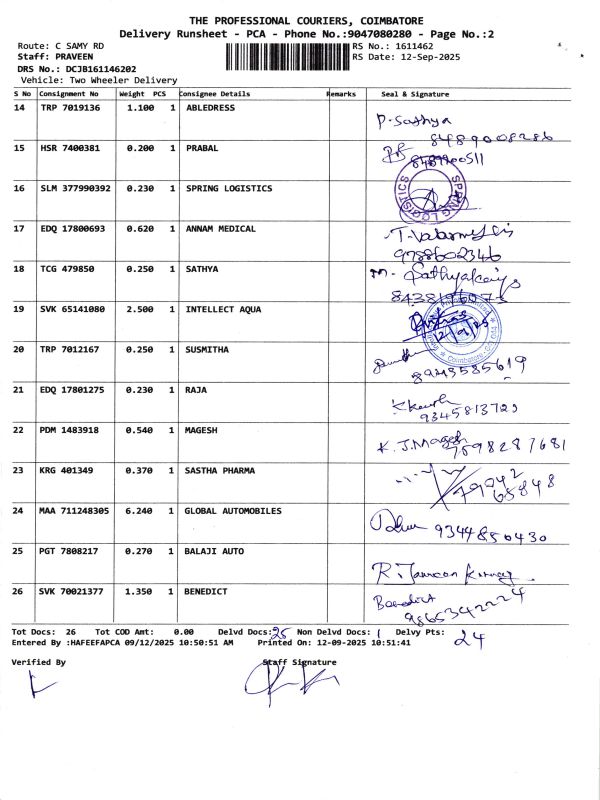 THE PROFESSIONAL COURIERS, COIMBATORE
Delivery Runsheet - PCA - Phone No.:9047080280 - Page No.:2
Route: C SAMY RD RS No.: 1611462
Staff: PRAVEEN RS Date: 12-Sep-2025
DRS No.: DCJB161146202
Vehicle: Two Wheeler Delivery
S No Consignment No Weight PCS Consignee Details Remarks Seal & Signature
14 TRP 7019136 1.100 1 ABLEDRESS
P. Sathya
8489008286
15 HSR 7400381 0.200 1 PRABAL
16 SLM 377990392 0.230 1 SPRING LOGISTICS
SPRING LOGISTICS
17 EDQ 17800693 0.620 1 ANNAM MEDICAL
9788602346
18 TCG 479850 0.250 1 SATHYA
19 SVK 65141080 2.500 1 INTELLECT AQUA
12/9/25
Coimbatore
20 TRP 7012167 0.250 1 SUSMITHA
8943585619
21 EDQ 17801275 0.230 1 RAJA
9345813723
22 PDM 1483918 0.540 1 MAGESH
K. J. Magesh
7598287681
23 KRG 401349 0.370 1 SASTHA PHARMA
79042
65848
24 MAA 711248305 6.240 1 GLOBAL AUTOMOBILES
9344850430
25 PGT 7808217 0.270 1 BALAJI AUTO
26 SVK 70021377 1.350 1 BENEDICT
Benedict
9865342224
Tot Docs: 26 Tot COD Amt: 0.00 Delvd Docs: 25 Non Delvd Docs: 1 Delvy Pts: 24
Entered By :HAFEEFAPCA 09/12/2025 10:50:51 AM Printed On: 12-09-2025 10:51:41
Verified By Staff Signature